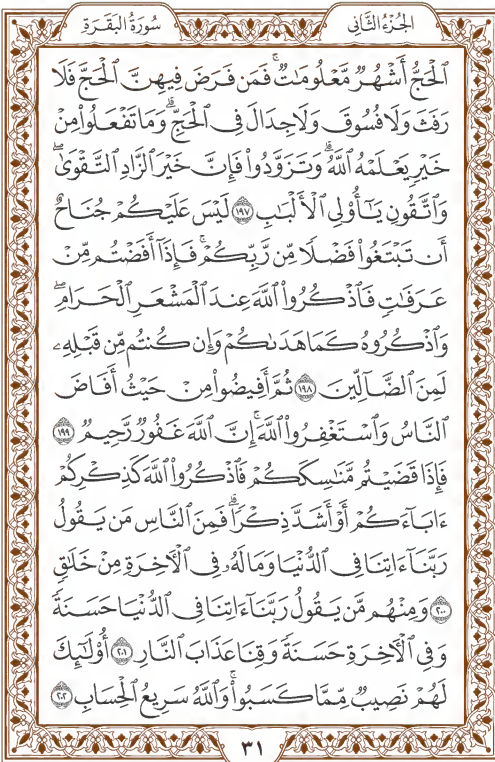 الجُزْءُ الثَّانِي
سُورَةُ البَقَرَةِ
ٱلۡحَجُّ أَشۡهُرٞ مَّعۡلُومَٰتٞۚ فَمَن فَرَضَ فِيهِنَّ ٱلۡحَجَّ فَلَا
رَفَثَ وَلَا فُسُوقَ وَلَا جِدَالَ فِي ٱلۡحَجِّۗ وَمَا تَفۡعَلُواْ مِنۡ
خَيۡرٖ يَعۡلَمۡهُ ٱللَّهُۗ وَتَزَوَّدُواْ فَإِنَّ خَيۡرَ ٱلزَّادِ ٱلتَّقۡوَىٰۖ
وَٱتَّقُونِ يَٰٓأُوْلِي ٱلۡأَلۡبَٰبِ ١٩٧ لَيۡسَ عَلَيۡكُمۡ جُنَاحٌ
أَن تَبۡتَغُواْ فَضۡلٗا مِّن رَّبِّكُمۡۚ فَإِذَآ أَفَضۡتُم مِّنۡ
عَرَفَٰتٖ فَٱذۡكُرُواْ ٱللَّهَ عِندَ ٱلۡمَشۡعَرِ ٱلۡحَرَامِۖ
وَٱذۡكُرُوهُ كَمَا هَدَىٰكُمۡ وَإِن كُنتُم مِّن قَبۡلِهِۦ
لَمِنَ ٱلضَّآلِّينَ ١٩٨ ثُمَّ أَفِيضُواْ مِنۡ حَيۡثُ أَفَاضَ
ٱلنَّاسُ وَٱسۡتَغۡفِرُواْ ٱللَّهَۚ إِنَّ ٱللَّهَ غَفُورٞ رَّحِيمٞ ١٩٩
فَإِذَا قَضَيۡتُم مَّنَٰسِكَكُمۡ فَٱذۡكُرُواْ ٱللَّهَ كَذِكۡرِكُمۡ
ءَابَآءَكُمۡ أَوۡ أَشَدَّ ذِكۡرٗاۗ فَمِنَ ٱلنَّاسِ مَن يَقُولُ
رَبَّنَآ ءَاتِنَا فِي ٱلدُّنۡيَا وَمَا لَهُۥ فِي ٱلۡأٓخِرَةِ مِنۡ خَلَٰقٖ
٢٠٠ وَمِنۡهُم مَّن يَقُولُ رَبَّنَآ ءَاتِنَا فِي ٱلدُّنۡيَا حَسَنَةٗ
وَفِي ٱلۡأٓخِرَةِ حَسَنَةٗ وَقِنَا عَذَابَ ٱلنَّارِ ٢٠١ أُوْلَٰٓئِكَ
لَهُمۡ نَصِيبٞ مِّمَّا كَسَبُواْۚ وَٱللَّهُ سَرِيعُ ٱلۡحِسَابِ ٢٠٢
٣١